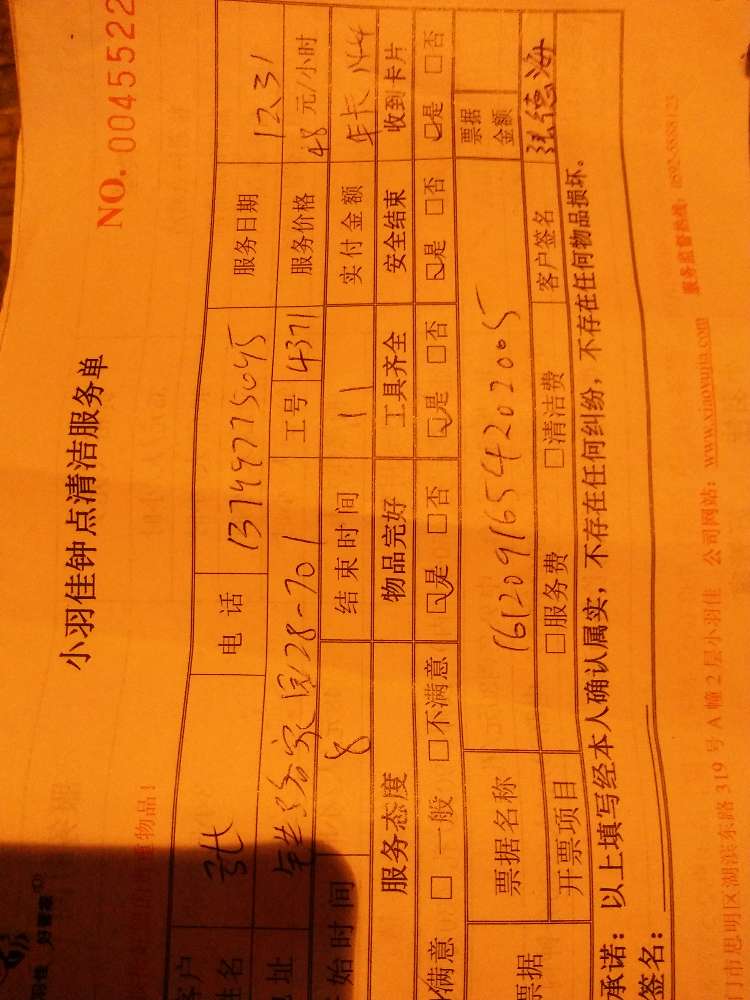 小羽佳钟点清洁服务单
NO. 0045522
物品！
客户姓名 张 电话 13749775045 服务日期 1231
地址 家园128-701 工号 4371 服务价格 48 元/小时
始时间 8 结束时间 11 实付金额 年长144
服务态度 物品完好 工具齐全 安全结束 收到卡片
满意 □一般 □不满意 ☑是 □否 ☑是 □否 ☑是 □否 ☑是 □否
票据 票据名称 1612091654202005 票据金额
开票项目 □服务费 □清洁费 客户签名 张德海
承诺：以上填写经本人确认属实，不存在任何纠纷，不存在任何物品损坏。
签名：
门市思明区湖滨东路 319 号 A 幢 2 层小羽佳 公司网站：www.xiaoyujia.com 服务监督热线：0592-5888123